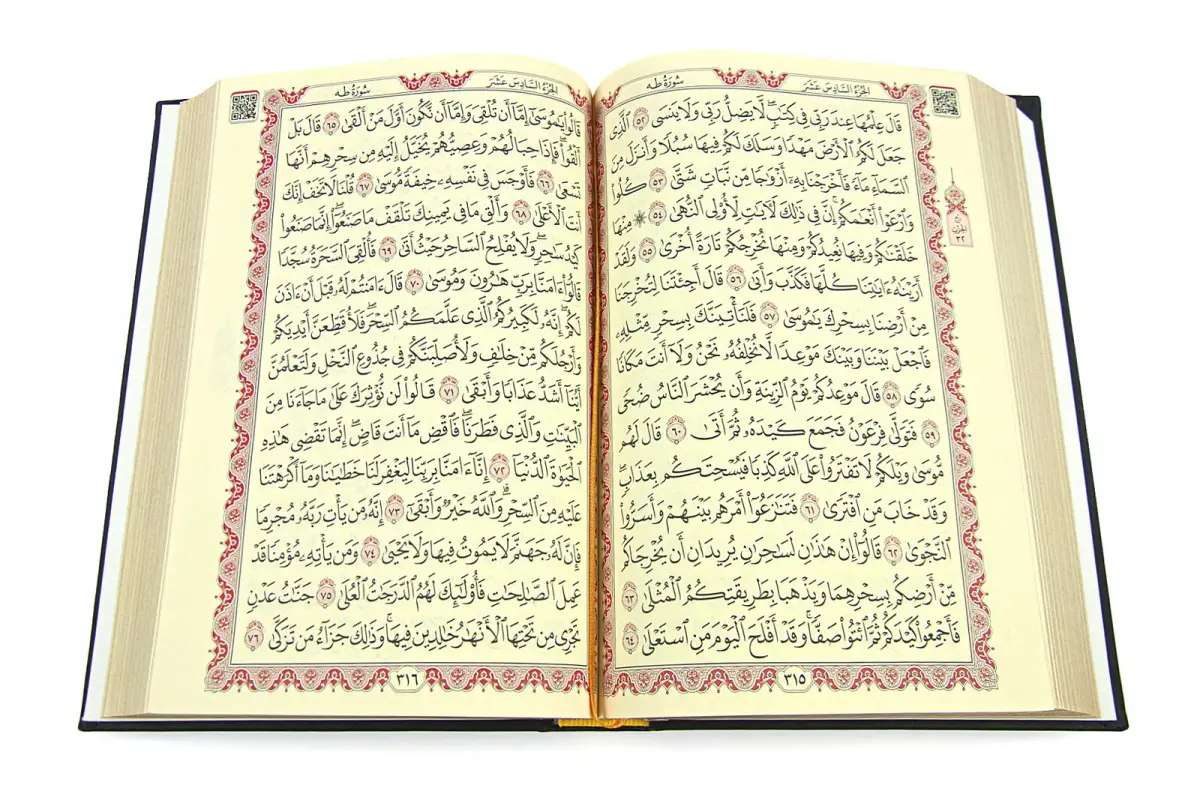 سُورَةُ طه
الجُزْءُ السَّادِسَ عَشَرَ
قَالَ عِلْمُهَا عِندَ رَبِّى فِى كِتَٰبٍۢ لَّا يَضِلُّ رَبِّى وَلَا يَنسَى ٥٢ ٱلَّذِى
جَعَلَ لَكُمُ ٱلْأَرْضَ مَهْدًا وَسَلَكَ لَكُمْ فِيهَا سُبُلًا وَأَنزَلَ مِنَ
ٱلسَّمَآءِ مَآءً فَأَخْرَجْنَا بِهِۦٓ أَزْوَٰجًا مِّن نَّبَاتٍ شَتَّىٰ ٥٣ كُلُوا۟
وَٱرْعَوْا۟ أَنْعَٰمَكُمْ ۗ إِنَّ فِى ذَٰلِكَ لَءَايَٰتٍ لِّأُو۟لِى ٱلنُّهَىٰ ٥٤ ۞ مِنْهَا
خَلَقْنَٰكُمْ وَفِيهَا نُعِيدُكُمْ وَمِنْهَا نُخْرِجُكُمْ تَارَةً أُخْرَىٰ ٥٥ وَلَقَدْ
أَرَيْنَٰهُ ءَايَٰتِنَا كُلَّهَا فَكَذَّبَ وَأَبَىٰ ٥٦ قَالَ أَجِئْتَنَا لِتُخْرِجَنَا
مِنْ أَرْضِنَا بِسِحْرِكَ يَٰمُوسَىٰ ٥٧ فَلَنَأْتِيَنَّكَ بِسِحْرٍ مِّثْلِهِۦ
فَٱجْعَلْ بَيْنَنَا وَبَيْنَكَ مَوْعِدًا لَّا نُخْلِفُهُۥ نَحْنُ وَلَآ أَنتَ مَكَانًا
سُوًى ٥٨ قَالَ مَوْعِدُكُمْ يَوْمُ ٱلزِّينَةِ وَأَن يُحْشَرَ ٱلنَّاسُ ضُحًى
٥٩ فَتَوَلَّىٰ فِرْعَوْنُ فَجَمَعَ كَيْدَهُۥ ثُمَّ أَتَىٰ ٦٠ قَالَ لَهُم
مُّوسَىٰ وَيْلَكُمْ لَا تَفْتَرُوا۟ عَلَى ٱللَّهِ كَذِبًا فَيُسْحِتَكُم بِعَذَابٍ ۖ
وَقَدْ خَابَ مَنِ ٱفْتَرَىٰ ٦١ فَتَنَٰزَعُوٓا۟ أَمْرَهُم بَيْنَهُمْ وَأَسَرُّوا۟
ٱلنَّجْوَىٰ ٦٢ قَالُوٓا۟ إِنْ هَٰذَٰنِ لَسَٰحِرَٰنِ يُرِيدَانِ أَن يُخْرِجَاكُم
مِّنْ أَرْضِكُم بِسِحْرِهِمَا وَيَذْهَبَا بِطَرِيقَتِكُمُ ٱلْمُثْلَىٰ ٦٣
فَأَجْمِعُوا۟ كَيْدَكُمْ ثُمَّ ٱئْتُوا۟ صَفًّا ۚ وَقَدْ أَفْلَحَ ٱلْيَوْمَ مَنِ ٱسْتَعْلَىٰ ٦٤
٣١٥
الجُزْءُ السَّادِسَ عَشَرَ
سُورَةُ طه
قَالُوا۟ يَٰمُوسَىٰٓ إِمَّآ أَن تُلْقِىَ وَإِمَّآ أَن نَّكُونَ أَوَّلَ مَنْ أَلْقَىٰ ٦٥ قَالَ بَلْ
أَلْقُوا۟ ۖ فَإِذَا حِبَالُهُمْ وَعِصِيُّهُمْ يُخَيَّلُ إِلَيْهِ مِن سِحْرِهِمْ أَنَّهَا
تَسْعَىٰ ٦٦ فَأَوْجَسَ فِى نَفْسِهِۦ خِيفَةً مُّوسَىٰ ٦٧ قُلْنَا لَا تَخَفْ إِنَّكَ
أَنتَ ٱلْأَعْلَىٰ ٦٨ وَأَلْقِ مَا فِى يَمِينِكَ تَلْقَفْ مَا صَنَعُوٓا۟ ۖ إِنَّمَا صَنَعُوا۟
كَيْدُ سَٰحِرٍ ۖ وَلَا يُفْلِحُ ٱلسَّاحِرُ حَيْثُ أَتَىٰ ٦٩ فَأُلْقِىَ ٱلسَّحَرَةُ سُجَّدًا
قَالُوٓا۟ ءَامَنَّا بِرَبِّ هَٰرُونَ وَمُوسَىٰ ٧٠ قَالَ ءَامَنتُمْ لَهُۥ قَبْلَ أَنْ ءَاذَنَ
لَكُمْ ۖ إِنَّهُۥ لَكَبِيرُكُمُ ٱلَّذِى عَلَّمَكُمُ ٱلسِّحْرَ ۖ فَلَأُقَطِّعَنَّ أَيْدِيَكُمْ
وَأَرْجُلَكُم مِّنْ خِلَٰفٍ وَلَأُصَلِّبَنَّكُمْ فِى جُذُوعِ ٱلنَّخْلِ وَلَتَعْلَمُنَّ
أَيُّنَآ أَشَدُّ عَذَابًا وَأَبْقَىٰ ٧١ قَالُوا۟ لَن نُّؤْثِرَكَ عَلَىٰ مَا جَآءَنَا مِنَ
ٱلْبَيِّنَٰتِ وَٱلَّذِى فَطَرَنَا ۖ فَٱقْضِ مَآ أَنتَ قَاضٍ ۖ إِنَّمَا تَقْضِى هَٰذِهِ
ٱلْحَيَوٰةَ ٱلدُّنْيَآ ٧٢ إِنَّآ ءَامَنَّا بِرَبِّنَا لِيَغْفِرَ لَنَا خَطَٰيَٰنَا وَمَآ أَكْرَهْتَنَا
عَلَيْهِ مِنَ ٱلسِّحْرِ ۗ وَٱللَّهُ خَيْرٌ وَأَبْقَىٰٓ ٧٣ إِنَّهُۥ مَن يَأْتِ رَبَّهُۥ مُجْرِمًا
فَإِنَّ لَهُۥ جَهَنَّمَ لَا يَمُوتُ فِيهَا وَلَا يَحْيَىٰ ٧٤ وَمَن يَأْتِهِۦ مُؤْمِنًا قَدْ
عَمِلَ ٱلصَّٰلِحَٰتِ فَأُو۟لَٰٓئِكَ لَهُمُ ٱلدَّرَجَٰتُ ٱلْعُلَىٰ ٧٥ جَنَّٰتُ عَدْنٍ
تَجْرِى مِن تَحْتِهَا ٱلْأَنْهَٰرُ خَٰلِدِينَ فِيهَا ۚ وَذَٰلِكَ جَزَآءُ مَن تَزَكَّىٰ ٧٦
٣١٦